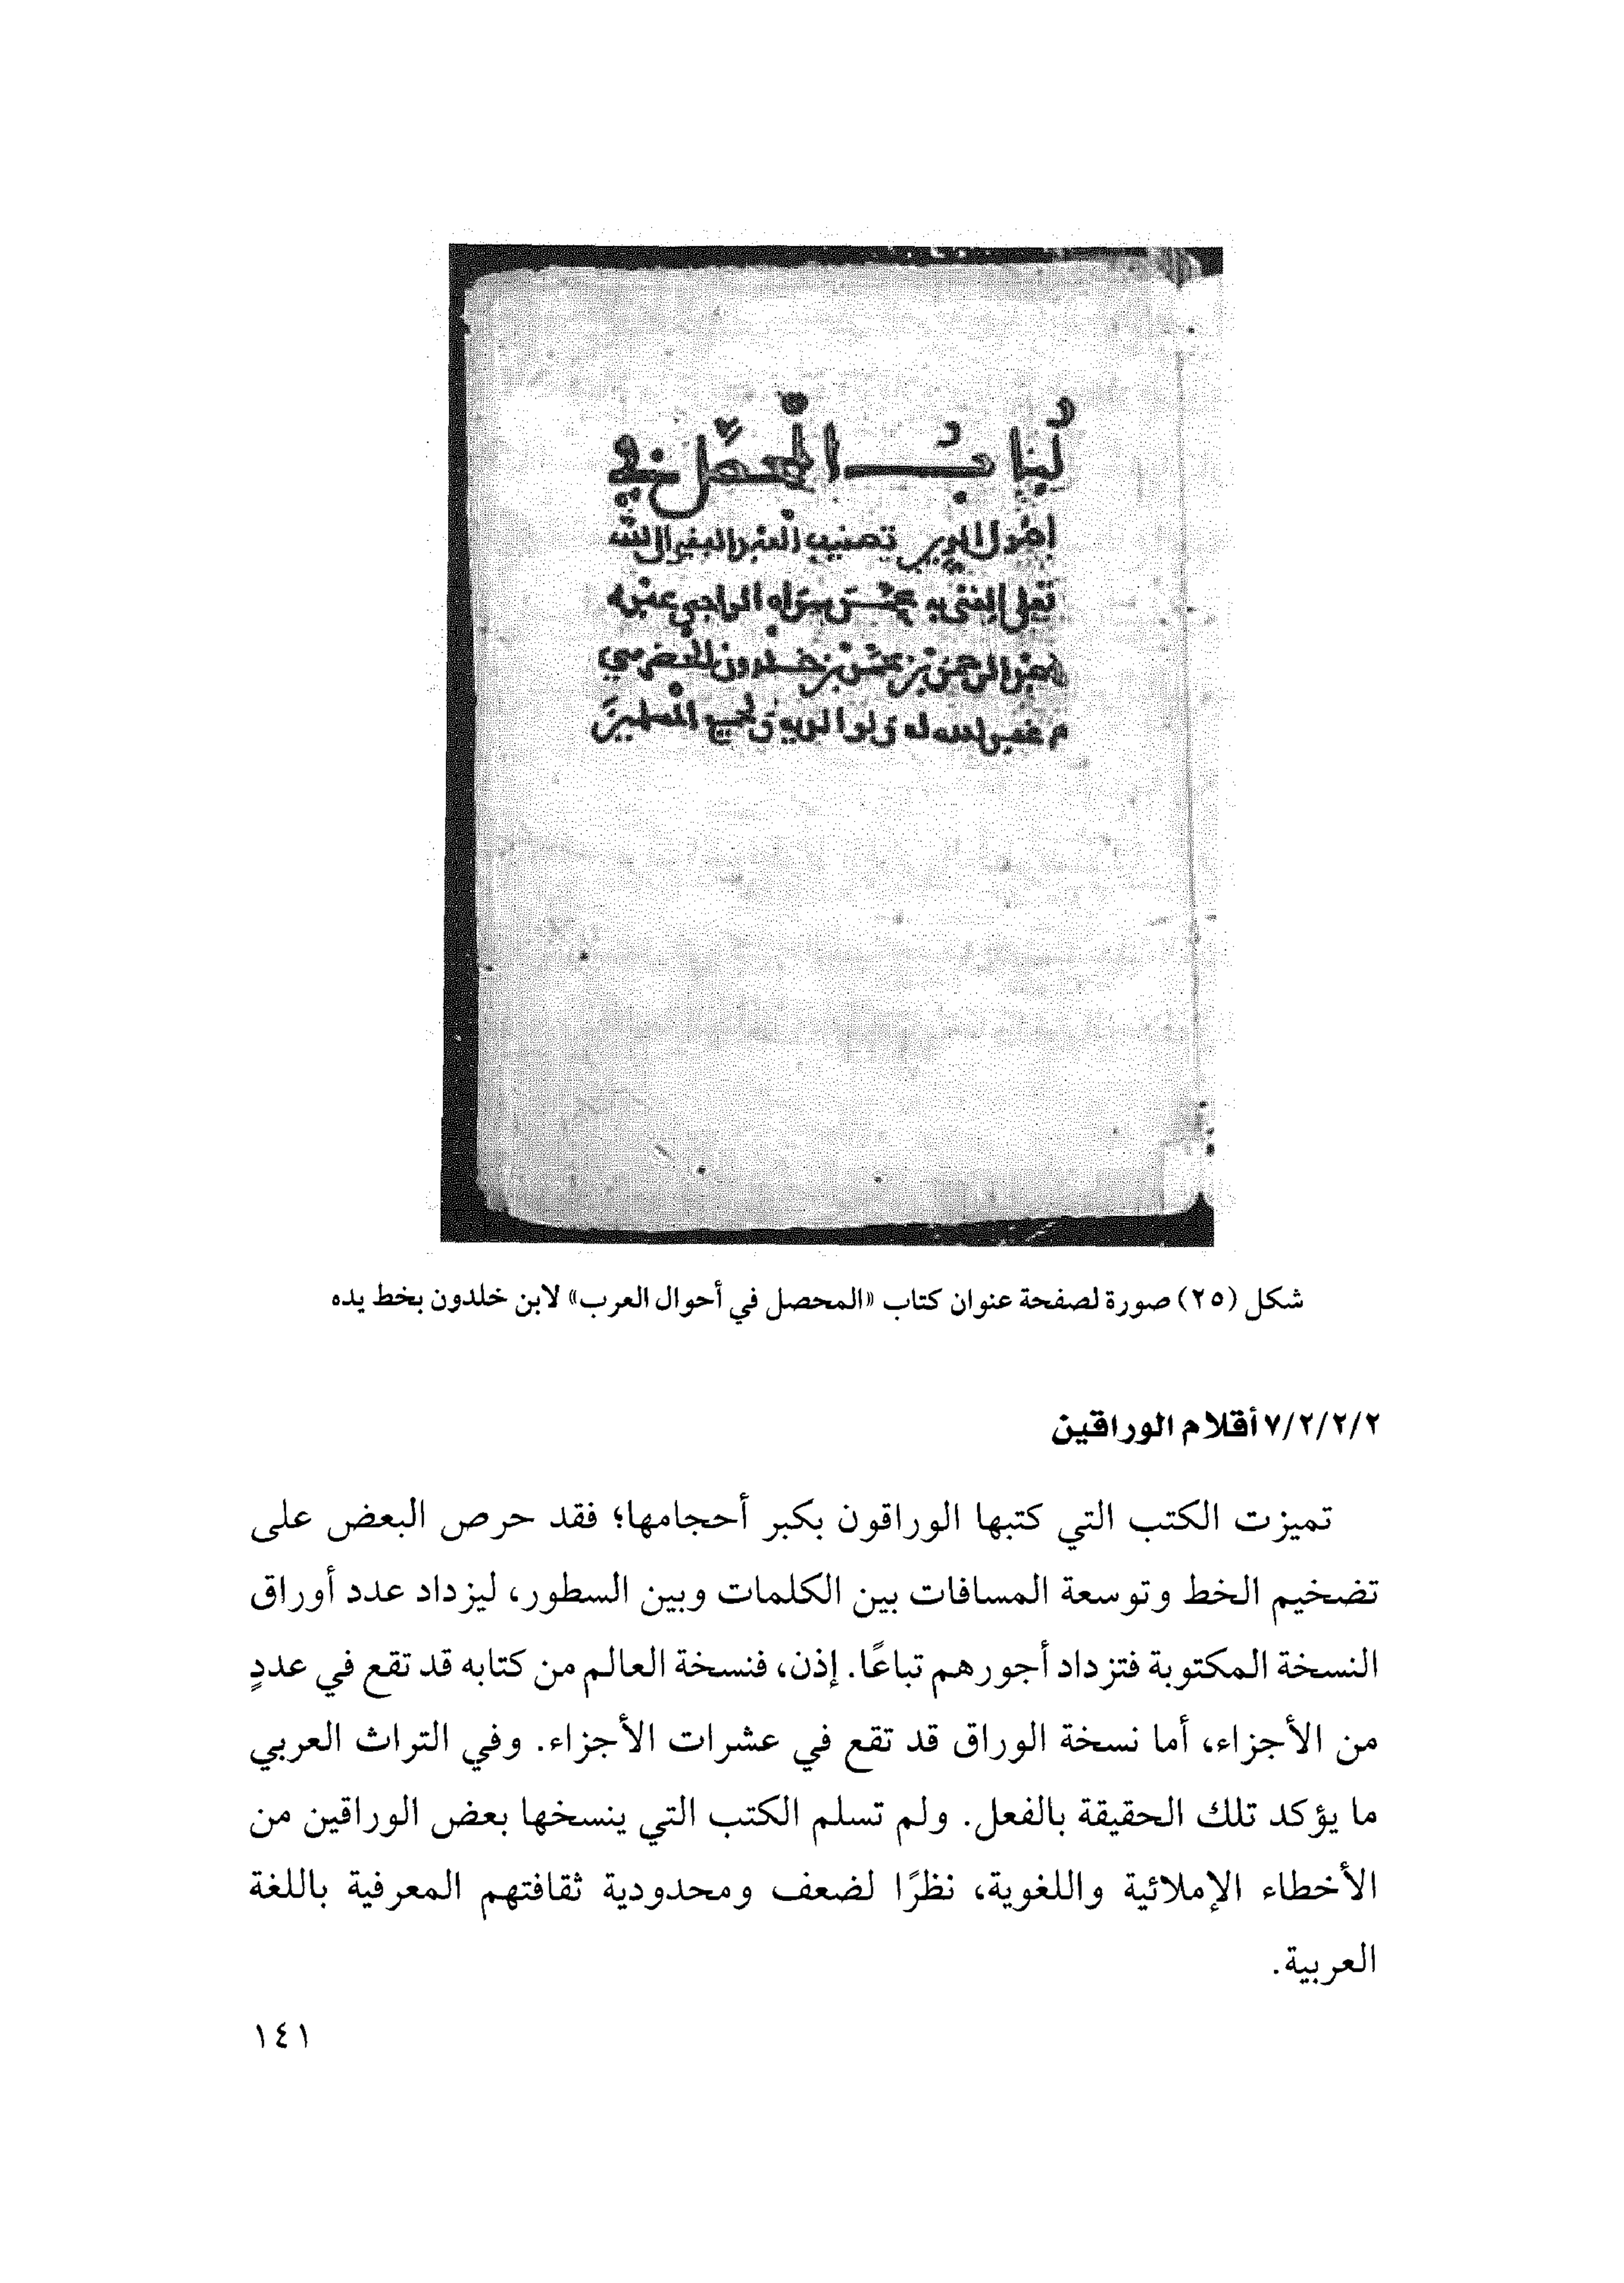 كتاب المحصل في
اصول الدين تصنيف العبد الفقير الى الله
تعلى الغنى به عمن سواه الراجي عفوه
عبد الرحمن بن محمد بن خلدون الحضرمي
غفر الله له ولوالديه ولجميع المسلمين
شكل (٢٥) صورة لصفحة عنوان كتاب «المحصل في أحوال العرب» لابن خلدون بخط يده
٧/٢/٢/٢ أقلام الوراقين
تميزت الكتب التي كتبها الوراقون بكبر أحجامها؛ فقد حرص البعض على
تضخيم الخط وتوسعة المسافات بين الكلمات وبين السطور، ليزداد عدد أوراق
النسخة المكتوبة فتزداد أجورهم تباعًا. إذن، فنسخة العالم من كتابه قد تقع في عددٍ
من الأجزاء، أما نسخة الوراق قد تقع في عشرات الأجزاء. وفي التراث العربي
ما يؤكد تلك الحقيقة بالفعل. ولم تسلم الكتب التي ينسخها بعض الوراقين من
الأخطاء الإملائية واللغوية، نظرًا لضعف ومحدودية ثقافتهم المعرفية باللغة
العربية.
١٤١